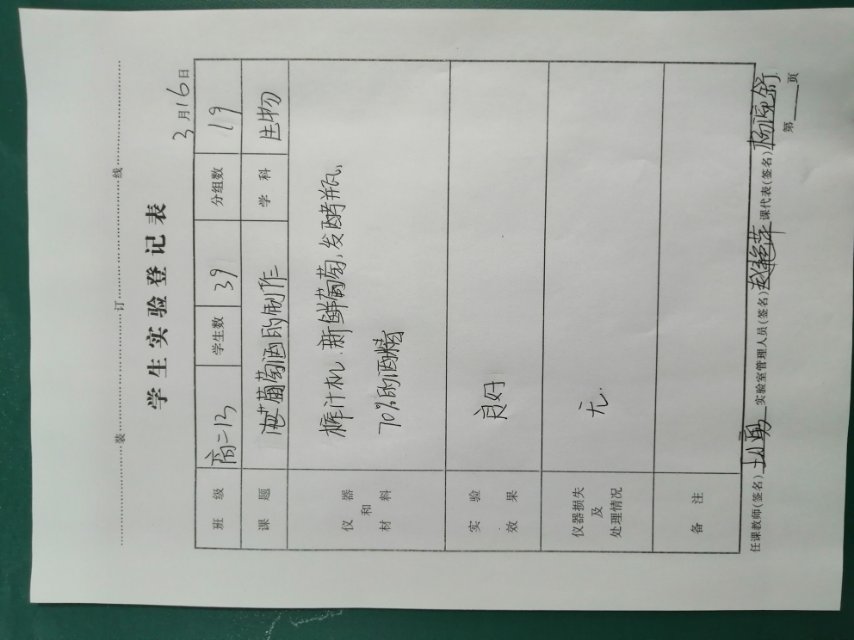 装 订 线
学生实验登记表
3月16日
班级 高二13 学生数 39 分组数 19
课题 葡萄酒的制作 学科 生物
仪器和材料 榨汁机、新鲜葡萄、发酵瓶、
70%的酒精
实验效果 良好
仪器损失及处理情况 无.
备注
任课教师(签名) 实验室管理人员(签名) 课代表(签名)
第 页